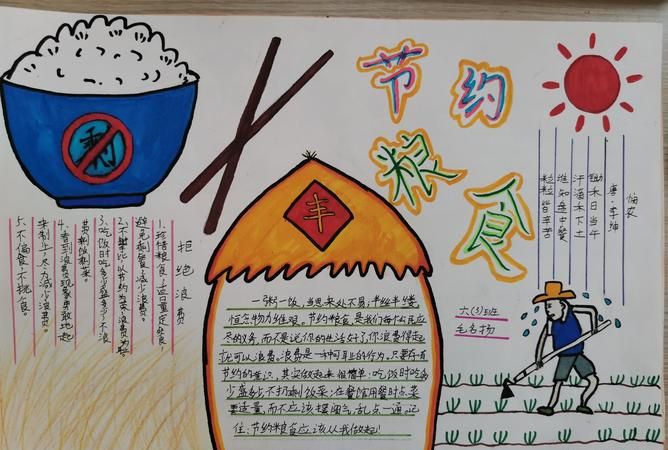 节约
粮食
拒绝浪费
1.珍惜粮食,适量定食,
避免剩餐,减少浪费。
2.不攀比,以节约为荣,浪费为耻
3.吃饭时吃多少盛多少,不浪
费剩饭剩菜。
4.看到浪费现象勇敢地起
来制止,尽力减少浪费。
5.不偏食,不挑食。
丰
一粥一饭,当思来处不易;半丝半缕,
恒念物力维艰。节约粮食,是我们每个公民应
尽的义务,而不是说你的生活好了,你浪费得起
就可以浪费。浪费是一种可耻的行为。只要存有
节约的意识,其实做起来很简单:吃饭时吃多
少盛多少,不扔剩饭菜;在餐馆用餐时点菜
要适量,而不应该摆阔气,乱点一通。记
住:节约粮食应该从我做起!
悯农
唐·李绅
锄禾日当午
汗滴禾下土
谁知盘中餐
粒粒皆辛苦
六(3)班
毛名扬